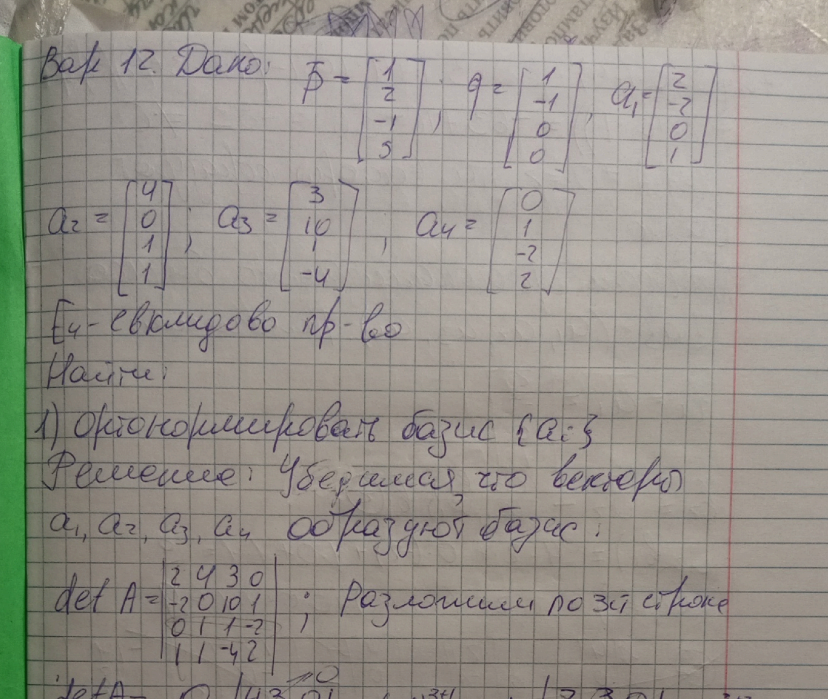 Вар 12. Дано: p = [1 2 -1 5]; q = [1 -1 0 0], a₁ = [2 -2 0 1]
a₂ = [4 0 1 1]; a₃ = [3 10 1 -4], a₄ = [0 1 -2 2]
E₄ - евклидово пр-во
Найти:
1) ортонормировать базис {aᵢ}
Решение: Убедимся, что векторы
a₁, a₂, a₃, a₄ образуют базис:
det A = |2 4 3 0
-2 0 10 1
0 1 1 -2
1 1 -4 2| ; Разложим по 3й строке
det A =